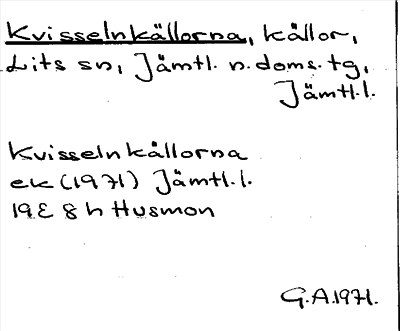 Kvisselnkällorna, källor,
Lits sn, Jämtl. n. doms. tg,
Jämtl. l.
Kvisselnkällorna
ek (1971) Jämtl. l.
19E 8h Husmon
G.A. 1971.